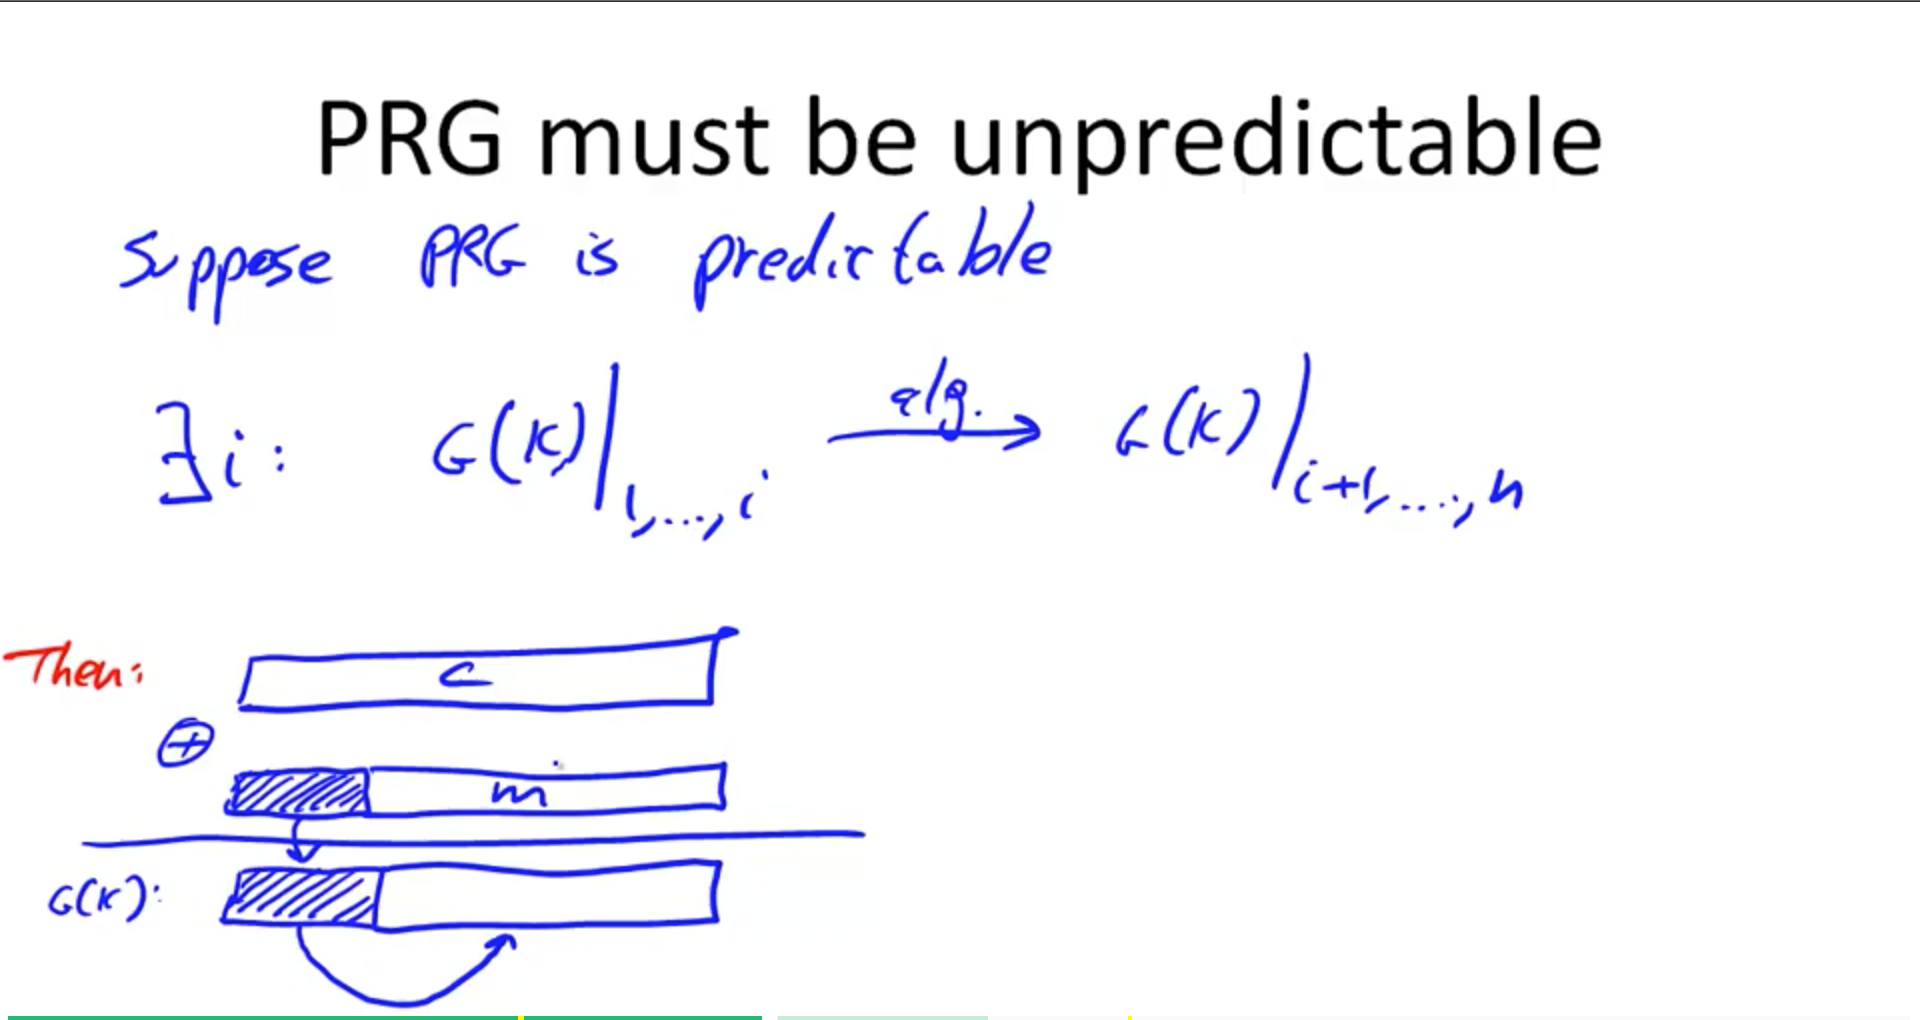 PRG must be unpredictable
Suppose PRG is predictable
∃i: G(K)|1,...,i alg. → G(K)|i+1,...,n
Then: c
⊕
m
G(K):